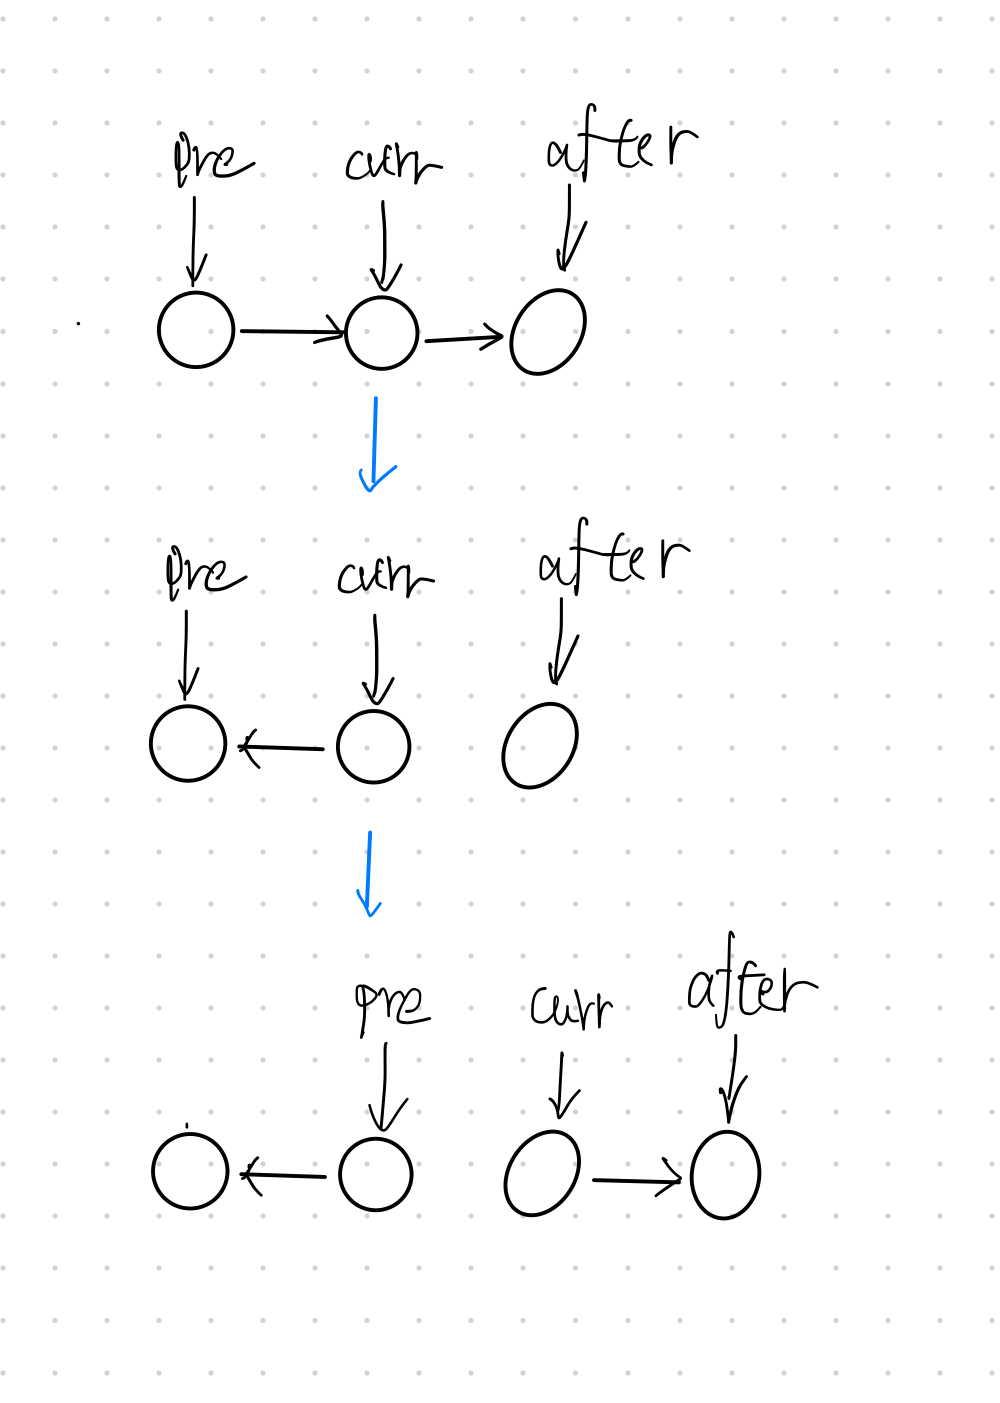 pre curr after
pre curr after
pre curr after